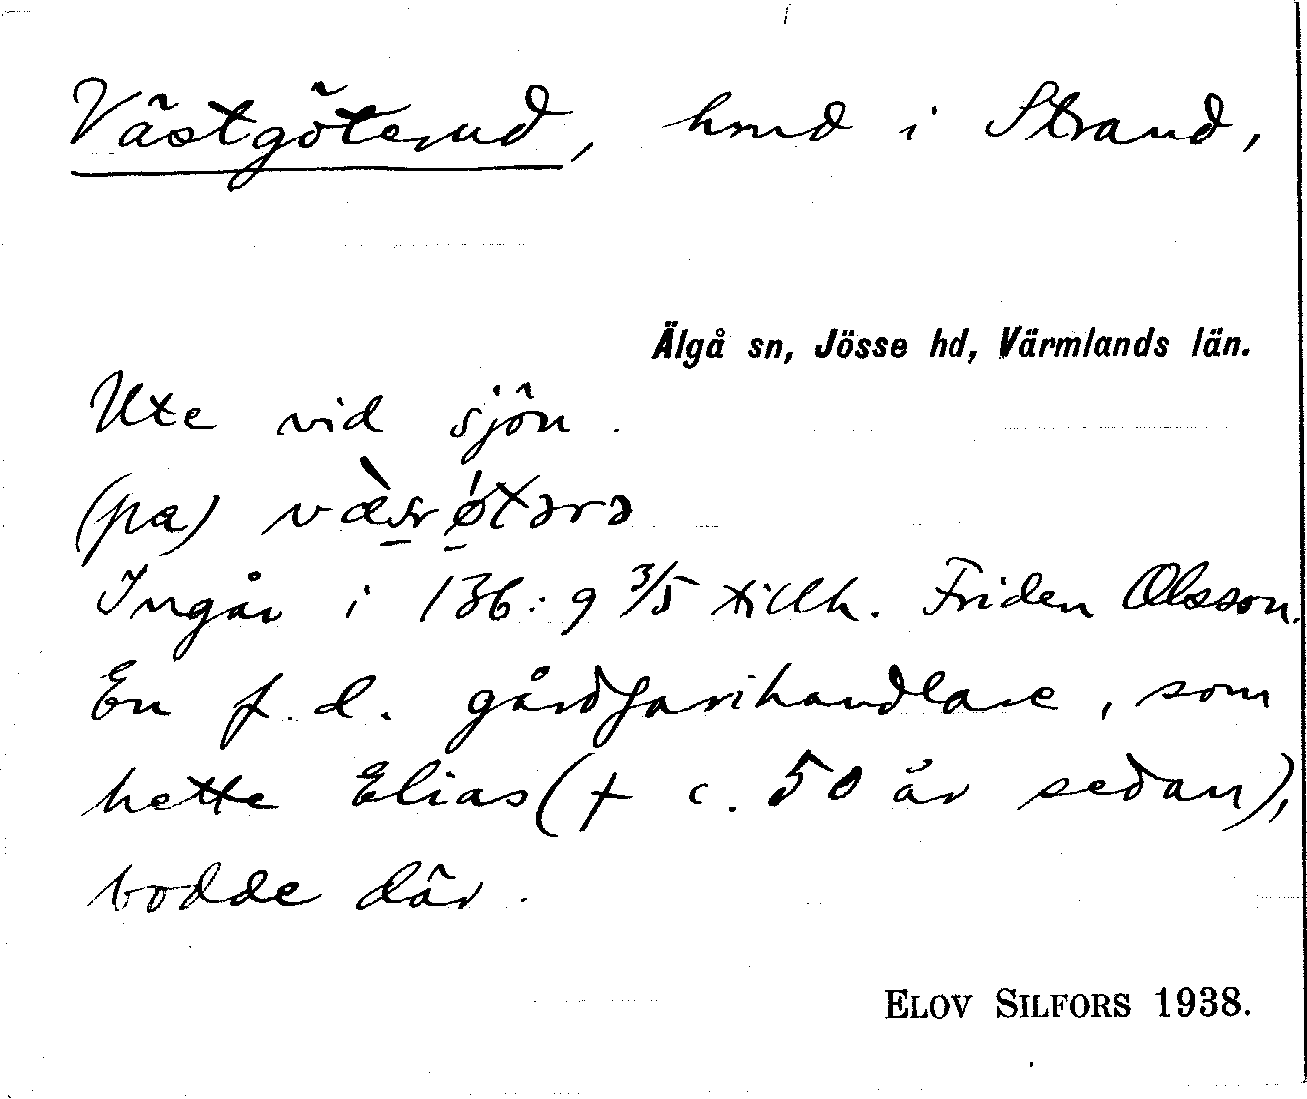 Västgöterud, hmd i Strand,
Älgå sn, Jösse hd, Värmlands län.
Ute vid sjön.
(pa)
Ingår i 136:9 3/5 tillh. Friden Olsson.
En f.d. gårdfarihandlare, som
hette Elias († c. 50 år sedan),
bodde där.
ELOV SILFORS 1938.